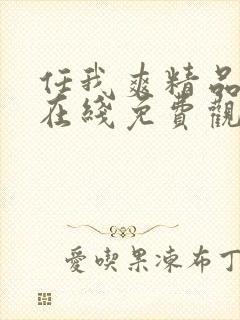 任我爽精品
在綫免費觀
愛喫果凍布丁